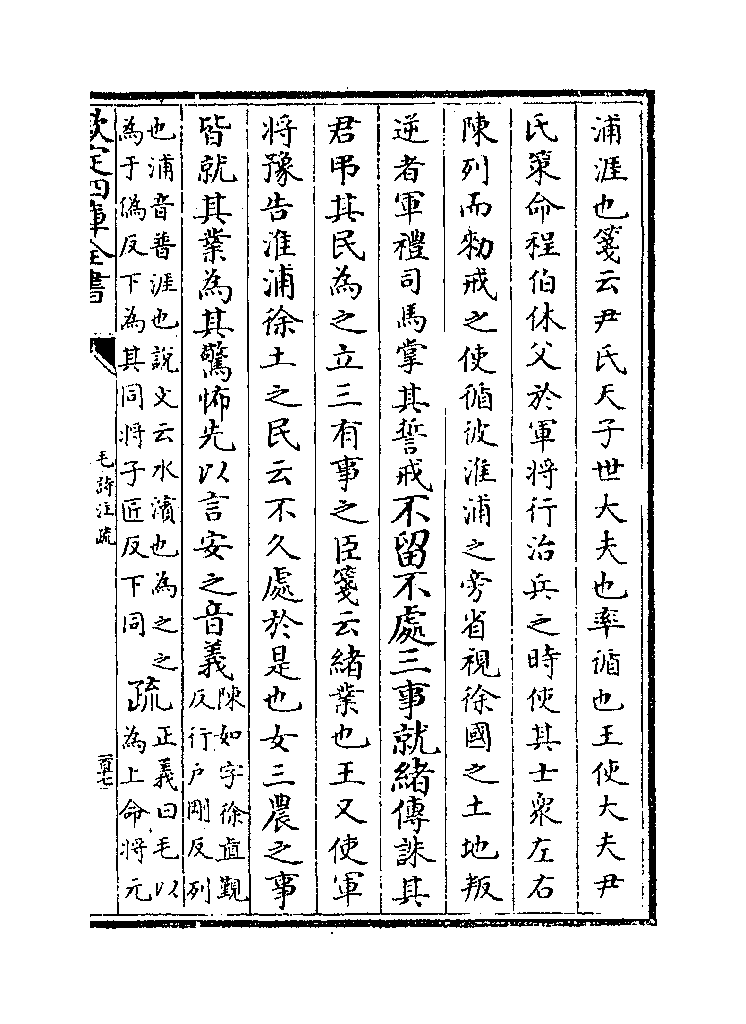 浦涯也箋云尹氏天子世大夫也率循也王使大夫尹
氏策命程伯休父於軍將行治兵之時使其士衆左右
陳列而勑戒之使循彼淮浦之旁省視徐國之土地叛
逆者軍禮司馬掌其誓戒不留不處三事就緒傳誅其
君弔其民為之立三有事之臣箋云緒業也王又使軍
將豫告淮浦徐土之民云不久處於是也女三農之事
皆就其業為其驚怖先以言安之音義陳如字徐直覲
反行戶剛反列
也浦音普涯也說文云水濱也為之之
為于偽反下為其同將子匠反下同
疏正義曰毛以
為上命將元
欽定四庫全書
毛詩注疏